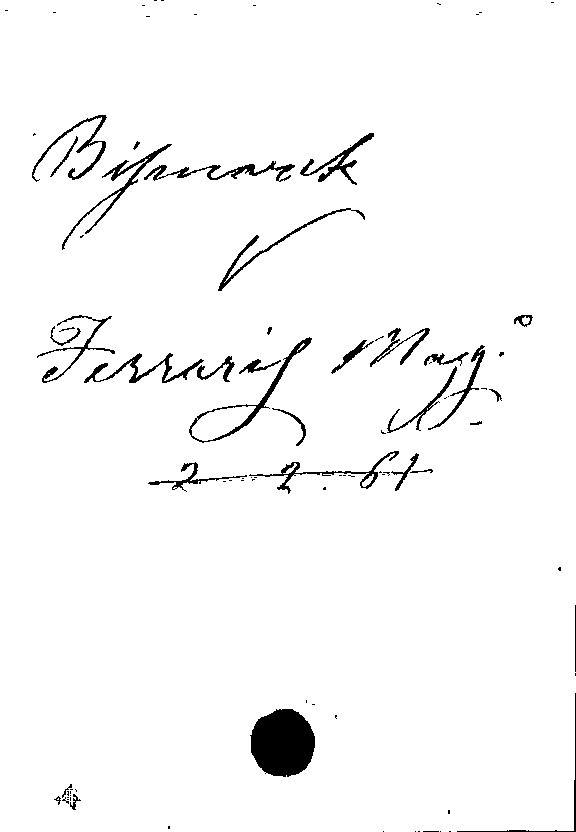 Bismarck
V
Ferraris Magg.º
2 2.61